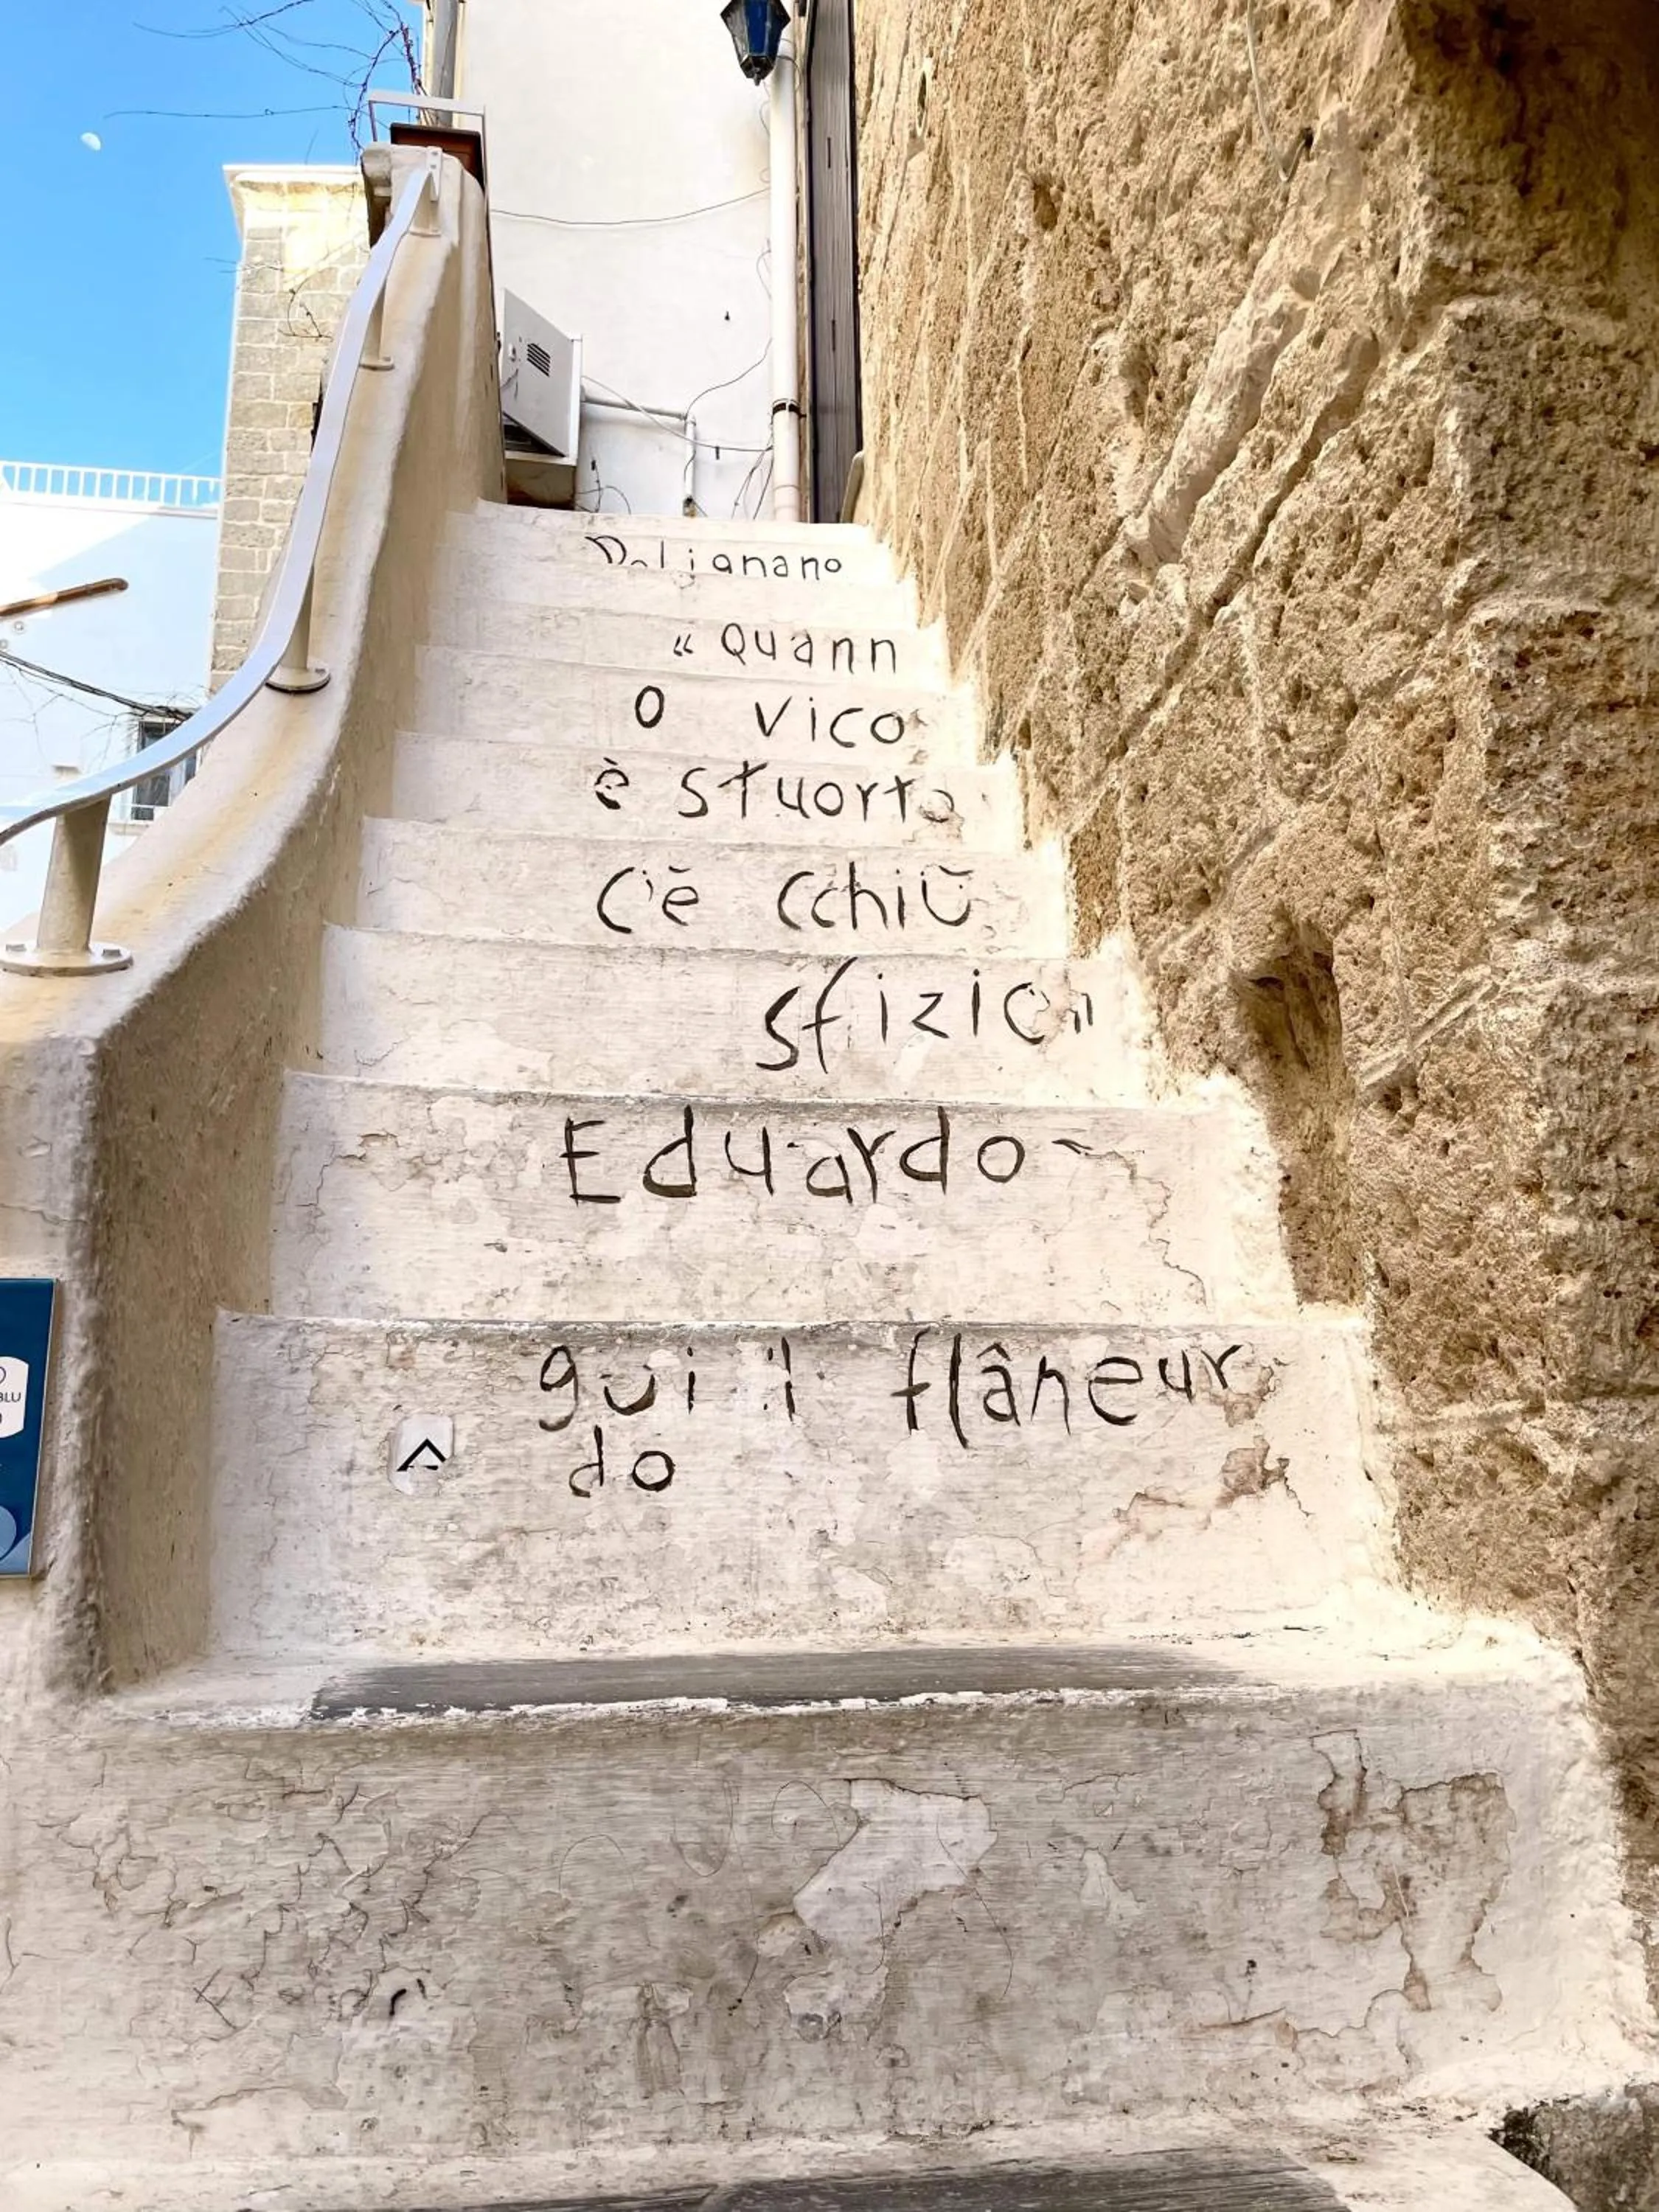 Polignano
« Quann
o vico
è stuorto
C'è cchiù
sfizio"
Eduardo
gui il flâneur
do
BLU